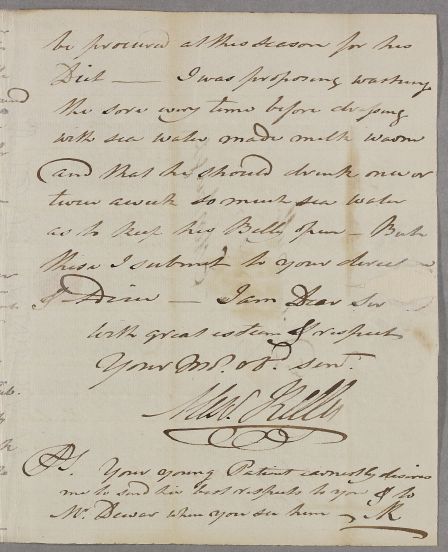 be procured at this season for his
Diet — I was proposing washing
the sore every time before dressing
with sea water made milk warm
and that he should drink once or
twice a week so much sea water
as to keep his Belly open – But
these I submit to your
— I am Dear Sir
with great esteem & respect
Your Mo. Ob. Servt.
Kelly
PS. Your young Patient earnestly desires
me to send his best respects to you & to
Mr Dewar when you see him –